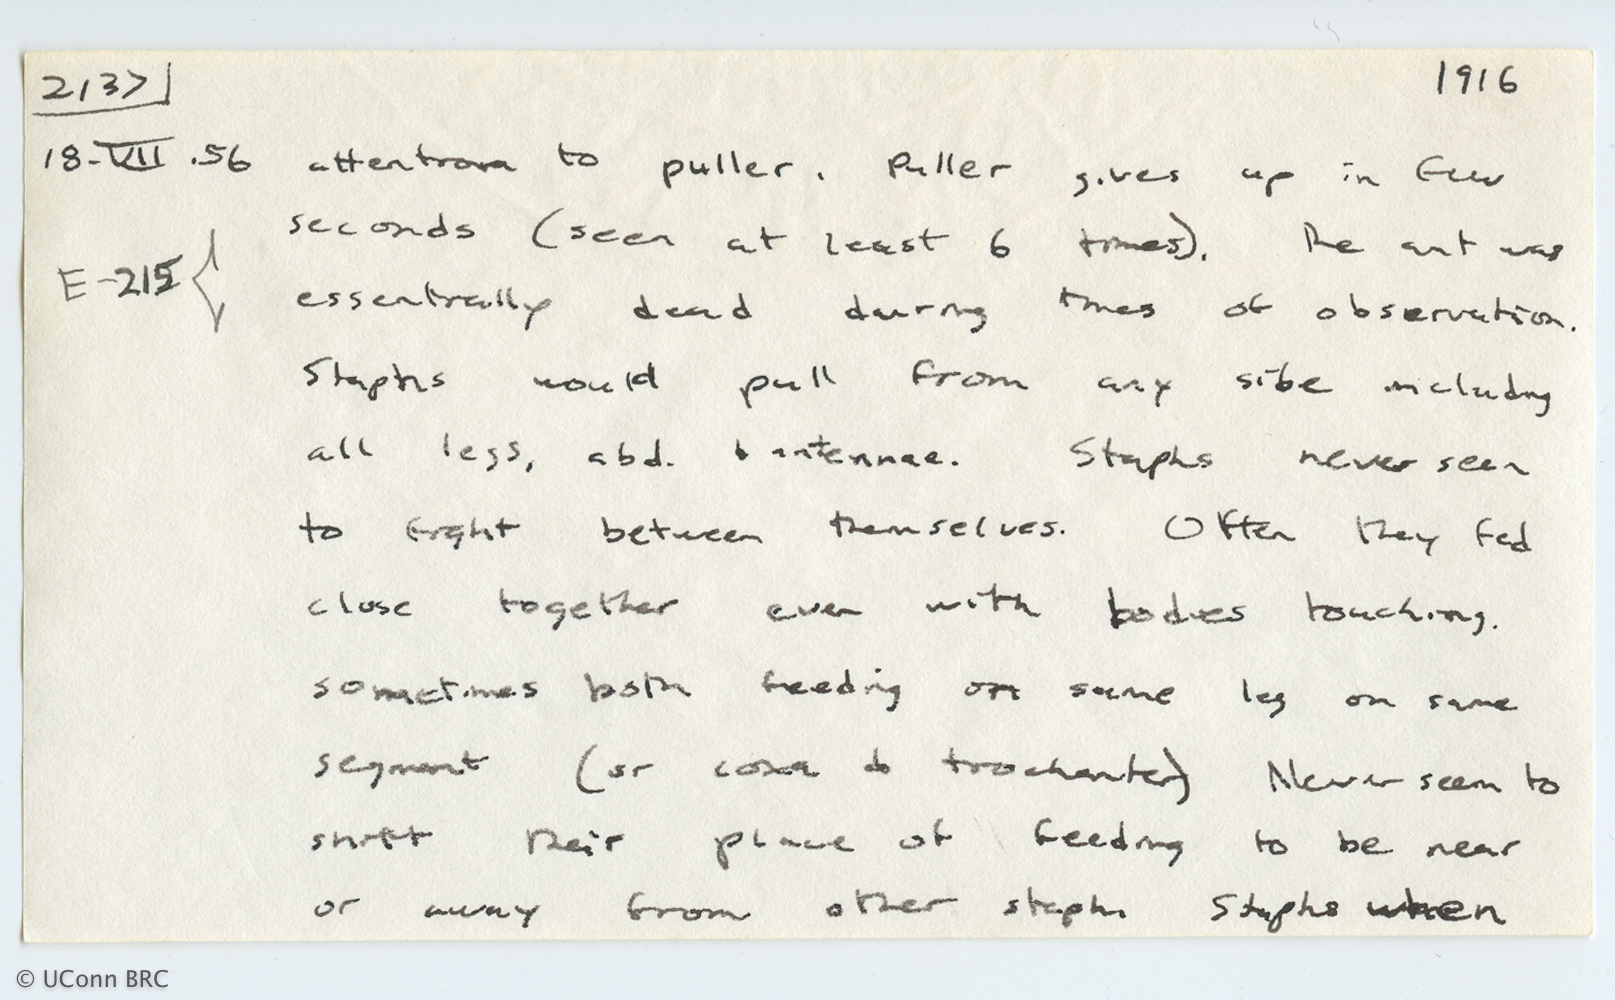 2137 1916
18-VII.56 attention to puller. Puller gives up in few
seconds (seen at least 6 times). The ant was
E-215 { essentrally dead during times of observation.
Staphs would pull from any side including
all legs, abd. & antennae. Staphs never seen
to fight between themselves. Often they fed
close together even with bodies touching.
sometimes both feeding on same leg on same
segment (or coxa & trochanter) Never seem to
shift their place of feeding to be near
or away from other staph. Staphs when
© UConn BRC